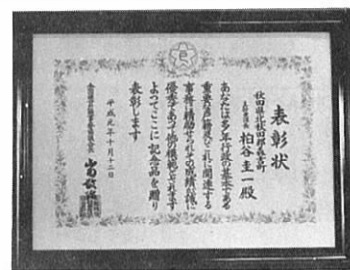 表彰状
秋田県北秋田郡森吉町
柏谷圭一殿
あなたは多年行政の基本である
重要な戸籍及びこれに関連する
事務に精励せられその成績が特に
優秀であって他の模範とされます
よってここに記念品を贈り
表彰します
平成元年十月十二日